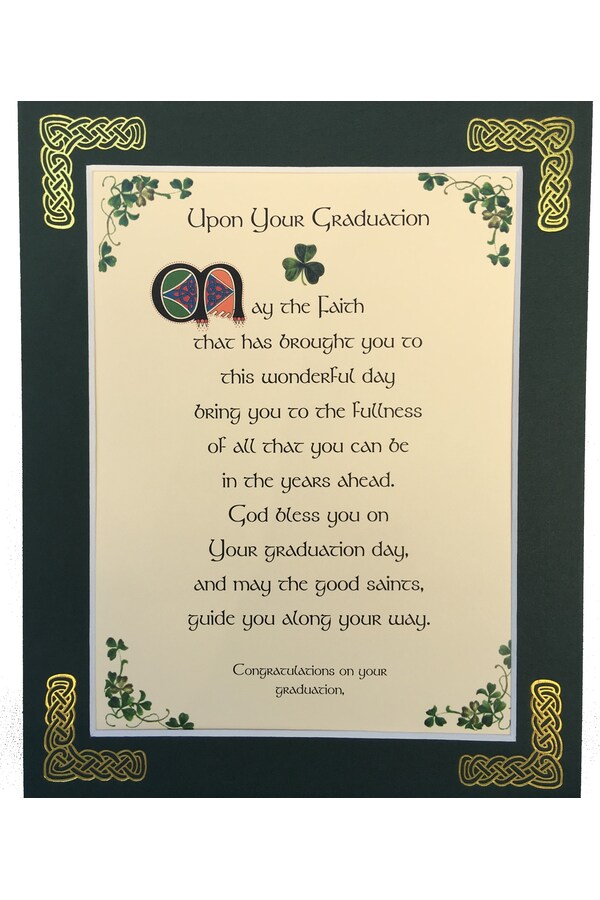 Upon Your Graduation
May the Faith
that has brought you to
this wonderful day
bring you to the fullness
of all that you can be
in the years ahead.
God bless you on
Your graduation day,
and may the good saints,
guide you along your way.
Congratulations on your
graduation,